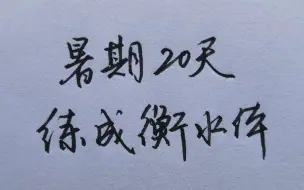 暑期20天
练成衡水体